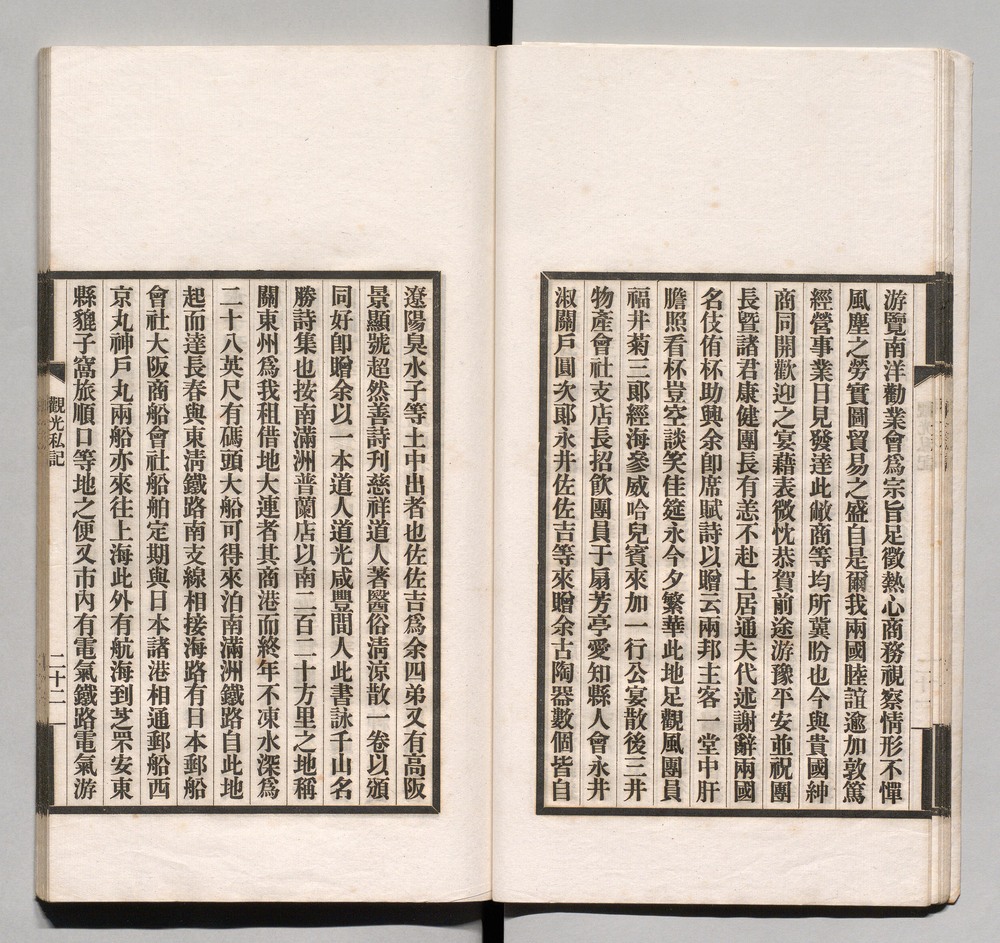 游覽南洋勸業會爲宗旨足徵熱心商務視察情形不憚
風塵之勞實圖貿易之盛自是爾我兩國睦誼逾加敦篤
經營事業日見發達此敝商等均所冀盼也今與貴國紳
商同開歡迎之宴藉表微忱恭賀前途游豫平安並祝團
長暨諸君康健團長有恙不赴土居通夫代述謝辭兩國
名伎侑杯助興余卽席賦詩以贈云兩邦主客一堂中肝
膽照看杯豈空談笑佳筵永今夕繁華此地足觀風團員
福井菊三郎經海參威哈兒賓來加一行公宴散後三井
物產會社支店長招飮團員于扇芳亭愛知縣人會永井
淑關戶圓次郎永井佐佐吉等來贈余古陶器數個皆自
遼陽臭水子等土中出者也佐佐吉爲余四弟又有高阪
景顯號超然善詩刊慈祥道人著醫俗淸凉散一卷以頒
同好卽贈余以一本道人道光咸豐間人此書詠千山名
勝詩集也按南滿洲普蘭店以南二百二十方里之地稱
關東州爲我租借地大連者其商港而終年不凍水深爲
二十八英尺有碼頭大船可得來泊南滿洲鐵路自此地
起而達長春與東淸鐵路南支線相接海路有日本郵船
會社大阪商船會社船舶定期與日本諸港相通郵船西
京丸神戶丸兩船亦來往上海此外有航海到芝罘安東
縣貔子窩旅順口等地之便又市內有電氣鐵路電氣游
觀光私記
二十二